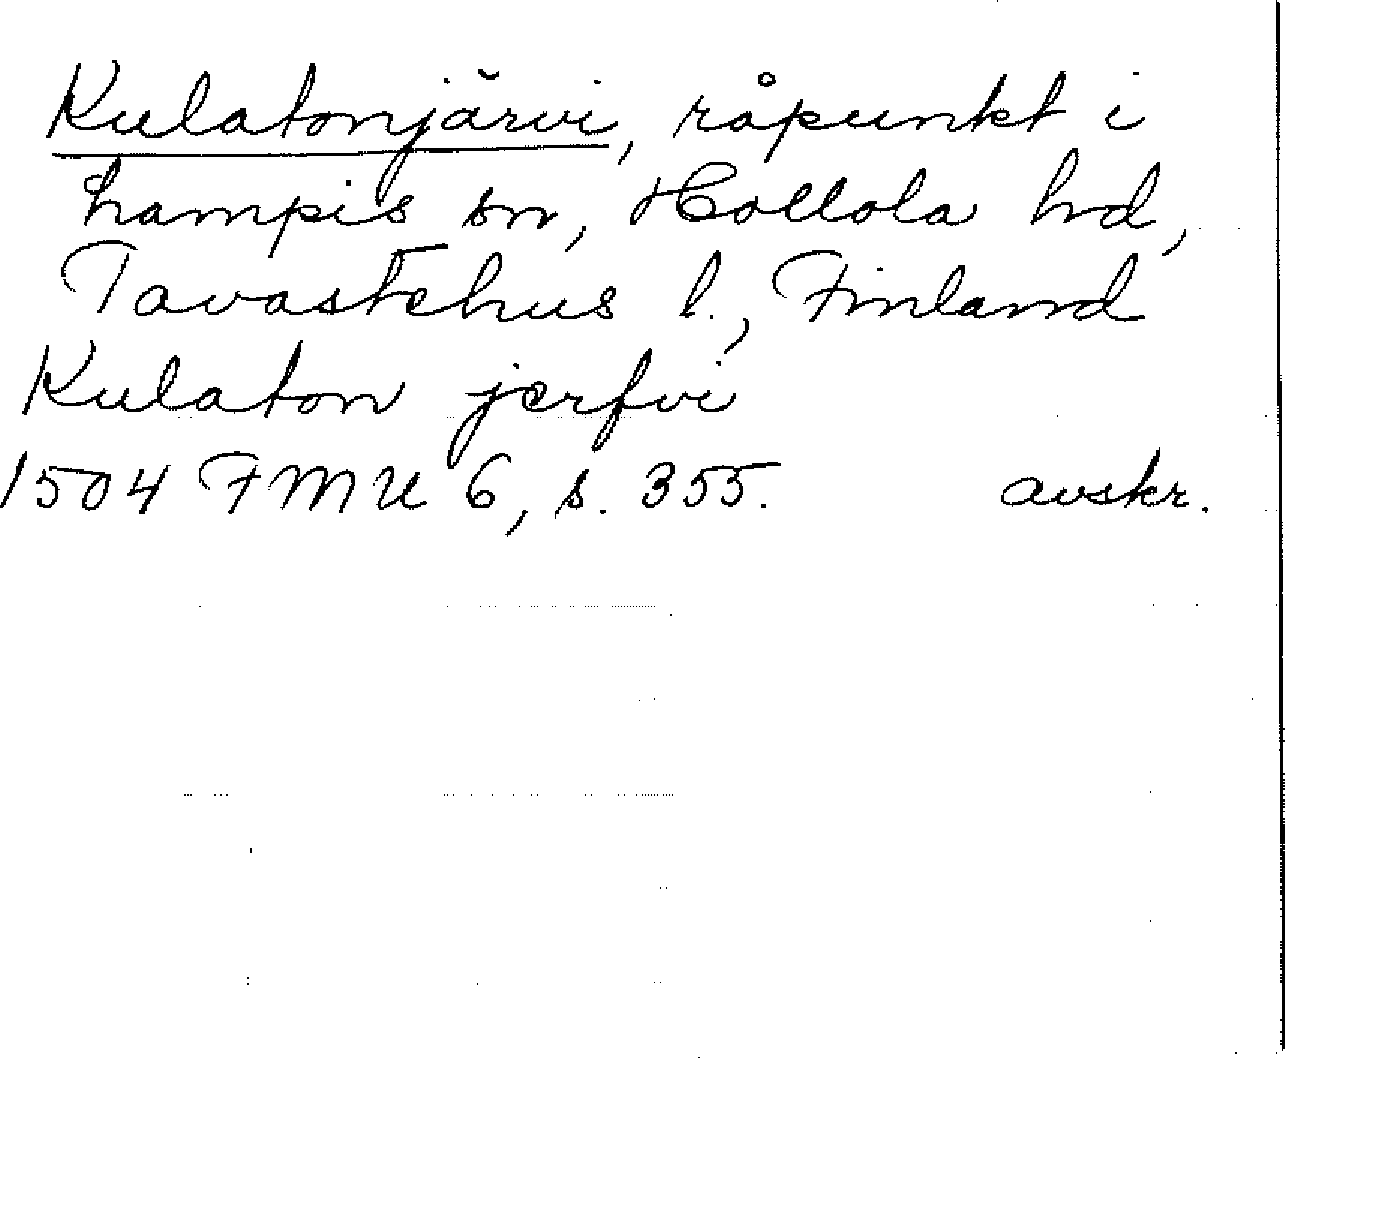 Kulatonjärvi, råpunkt i
Lampis sn, Hollola hd,
Tavastehus l., Finland
Kulaton jerfvi
1504 FMU 6, s. 355. avskr.